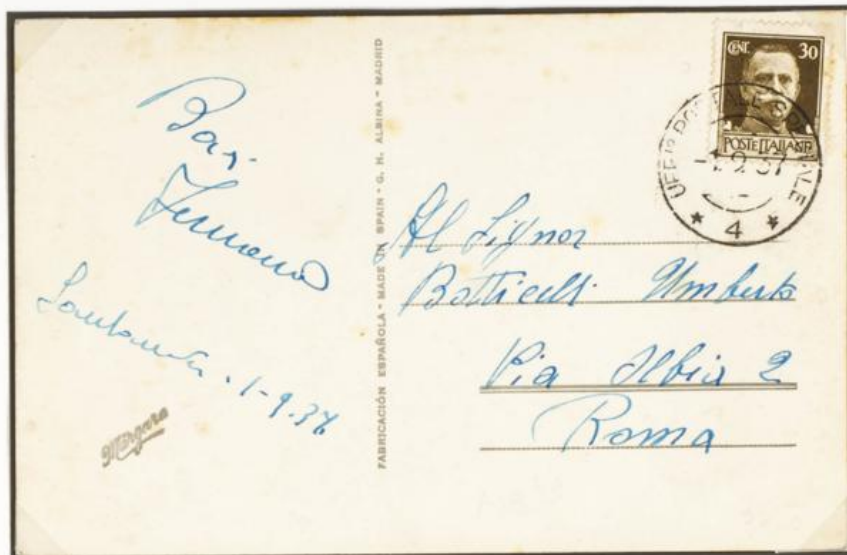 Baci
Santander. 1-9.37
Margara
FABRICACIÓN ESPAÑOLA - MADE IN SPAIN - G. H. ALSINA - MADRID
CENT. 30
POSTE ITALIANE
UFFº POSTALE SPECIALE
-1.9.37
* 4 *
Al Signor
Botticelli Umberto
Via Albia 2
Roma